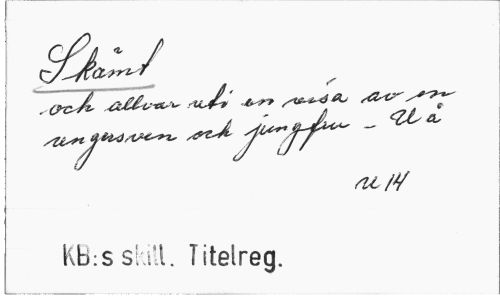 Skämt
och allvar uti en visa av en
ungersven och jungfru - U å
u 14
KB:s skill. Titelreg.